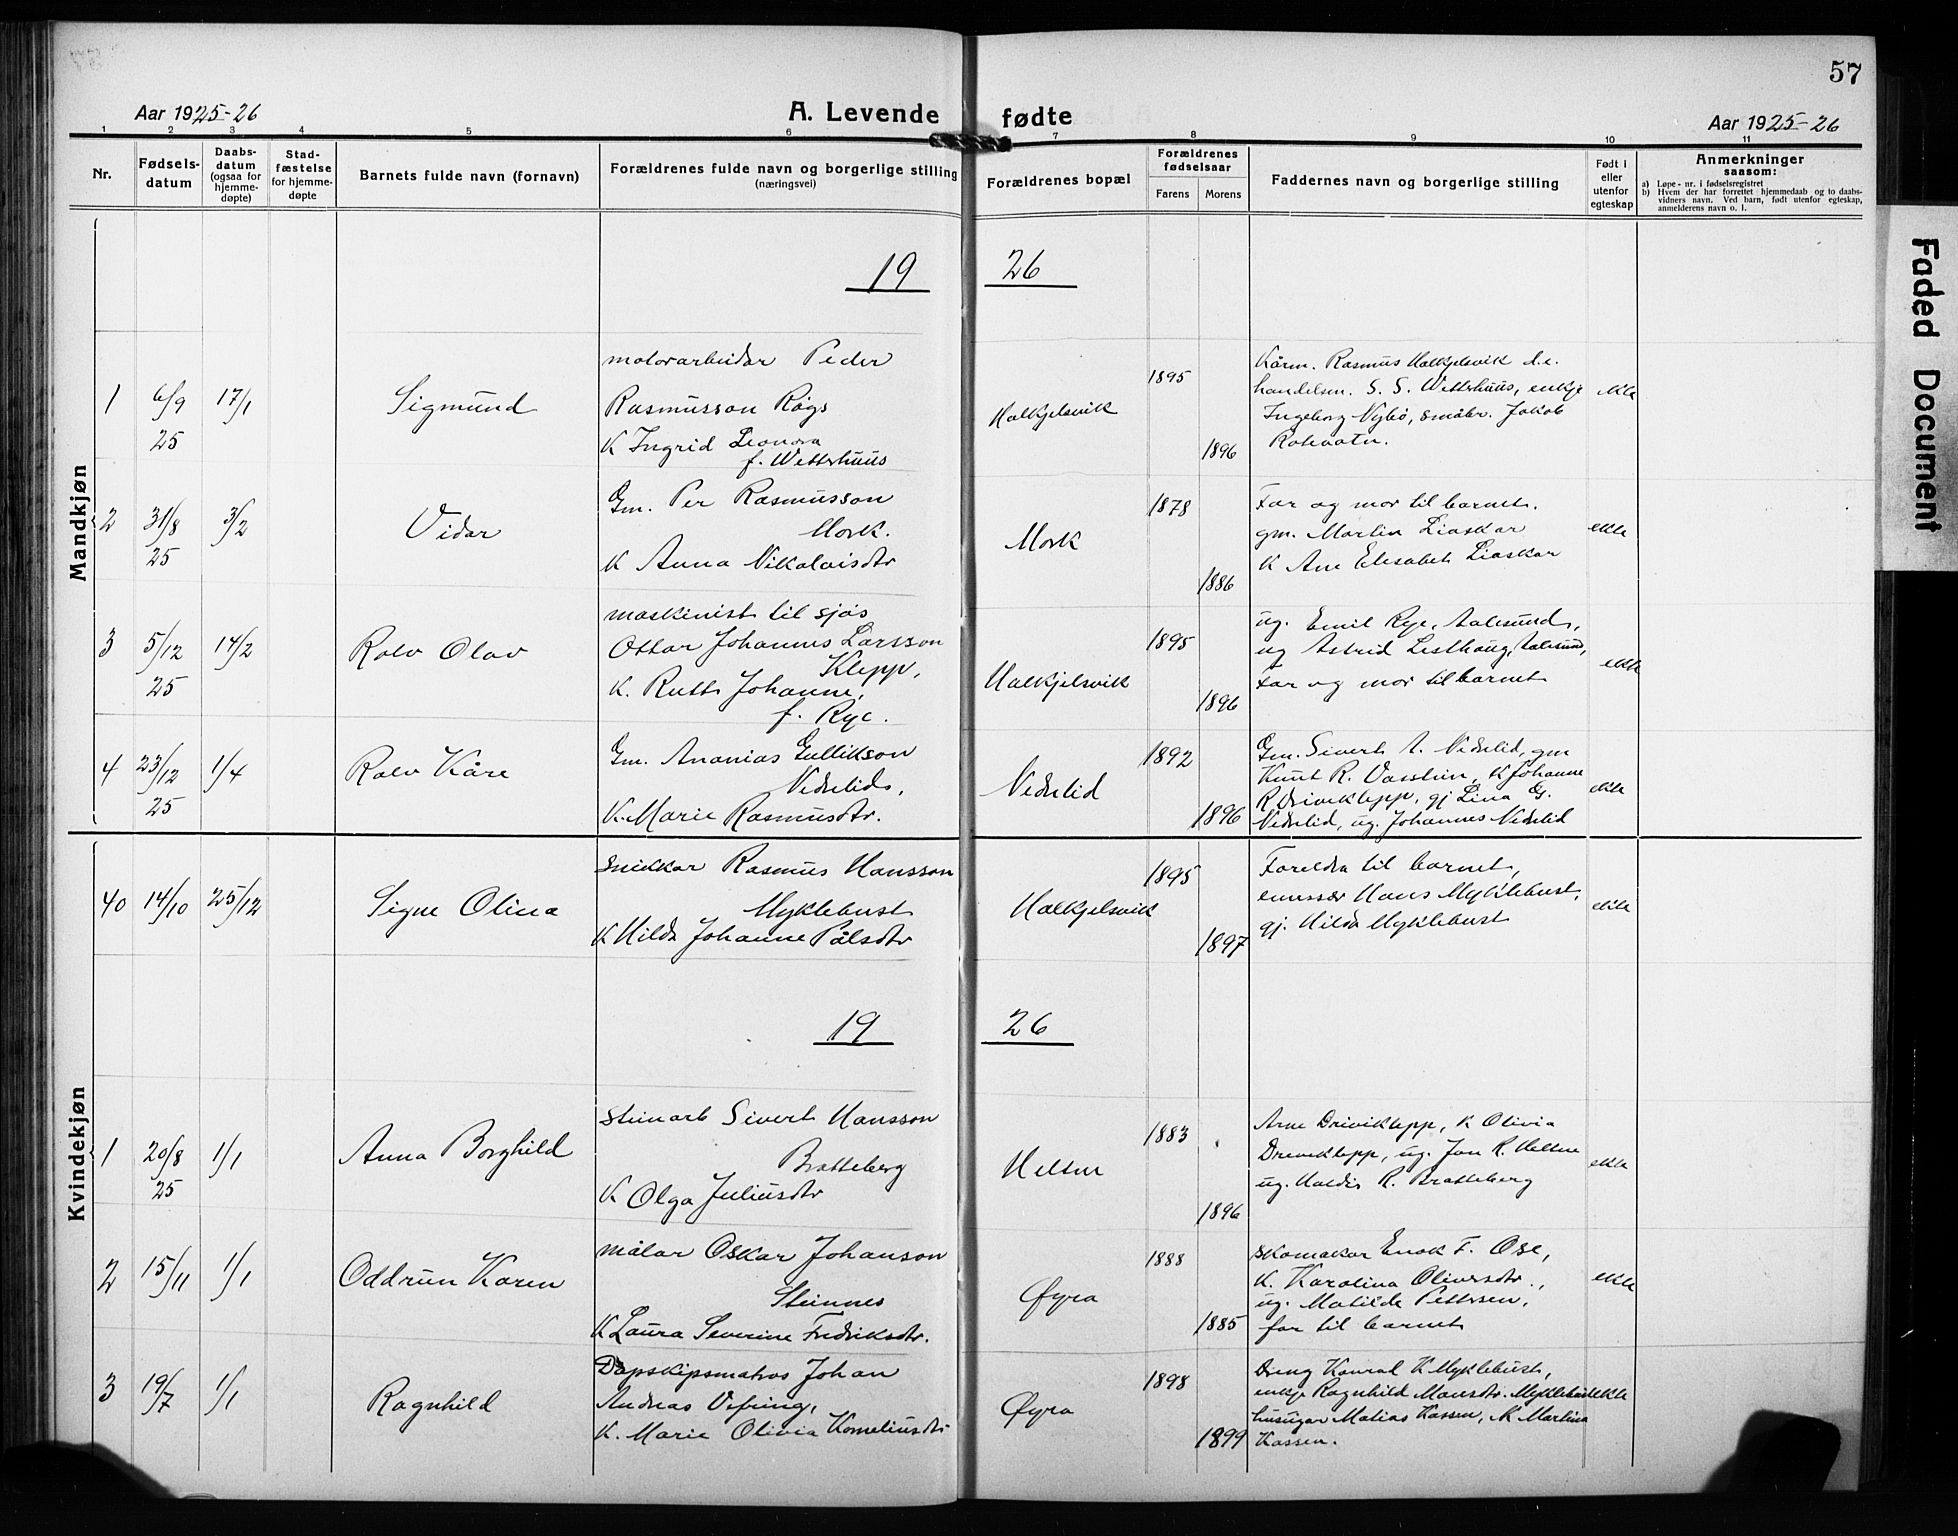 57
Aar 1925-26
A. Levende fødte
Aar 1925-26
1 2 3 4 5 6 7 8 9 10 11
Nr.
Fødselsdatum
Daabsdatum (ogsaa for hjemmedøpte)
Stadfæstelse for hjemmedøpte
Barnets fulde navn (fornavn)
Forældrenes fulde navn og borgerlige stilling (næringsvei)
Forældrenes bopæl
Forældrenes fødselsaar
Farens
Morens
Faddernes navn og borgerlige stilling
Født i eller utenfor egteskap
Anmerkninger saasom:
a) Løpe-nr. i fødselsregistret
b) Hvem der har forrettet hjemmedaab og to daabsvidners navn. Ved barn, født utenfor egteskap, anmelderens navn o. l.
Faded Document
Mandkjøn
19 26
1
6/9 25
17/1
Sigmund
motorarbeidar Peder
Rasmusson Røgs
K Ingrid Leonora
f. Wetterhuus
Halkjelsvik
1895
1896
Rasmus Halkjelsvik d.e.
handelsm. S. S. Wetterhuus, enkje
Ingeborg Nybø, småbr. Jakob
Rotevatn.
ekte
2
31/8 25
3/2
Vidar
Gm. Per Rasmusson
Mork.
K Anna Nikolaisdtr
Mork
1878
1886
Far og mor til barnet.
gm. Martin Liaskar
K Ane Elisabet Liaskar
ekte
3
5/12 25
14/2
Rolv Olav
maskinist til sjøs
Ottar Johannes Larsson
Klepp,
K. Ruth Johanne,
f. Rye.
Halkjelsvik
1895
1896
ug. Emil Rye, Aalesund,
ug Astrid Lesthaug, Aalesund,
far og mor til barnet
ekte
4
23/12 25
1/4
Rolv Kåre
Gm. Ananias Gullikson
Nedrelid,
K. Marie Rasmusdtr.
Nedrelid
1892
1896
Gm. Sivert A. Nedrelid, gm
Knut R. Vasslien, K Johanne
R Driveklepp, gj Lina G.
Nedrelid, ug. Johannes Nedrelid
ekte
Kvindekjøn
40
14/10
25/12
Signe Olina
snikkar Rasmus Hansson
Myklebust
K Hilda Johanne Pålsdtr
Halkjelsvik
1895
1897
Foreldra til barnet,
Hans Myklebust,
gj. Hilda Myklebust
ekte
19 26
1
20/8 25
1/1
Anna Borghild
steinarb Sivert Hansson
Bratteberg
K Olga Juliusdtr
Helsen
1883
1896
Arne Driveklepp, K Olivia
Driveklepp, ug. Jon R. Helsne
ug. Haldis R. Bratteberg
ekte
2
15/11
1/1
Oddrun Karen
målar Oskar Johanson
Steinnes
K Laura Severine Fredriksdtr.
Øyra
1888
1885
skomakar Enok F. Ose,
K. Karolina Oliversdtr.,
ug. Matilde Pettersen,
far til barnet
ekte
3
19/7
1/1
Ragnhild
Dampskipsmatros Johan
Andreas Vefring,
K. Marie Olivia Korneliusdtr
Øyra
1898
1899
Dreng Konral K Myklebust,
enkje Ragnhild Monsdtr. Myklebust
husugar Matias Kassen, K Martina
Kassen.
ekte